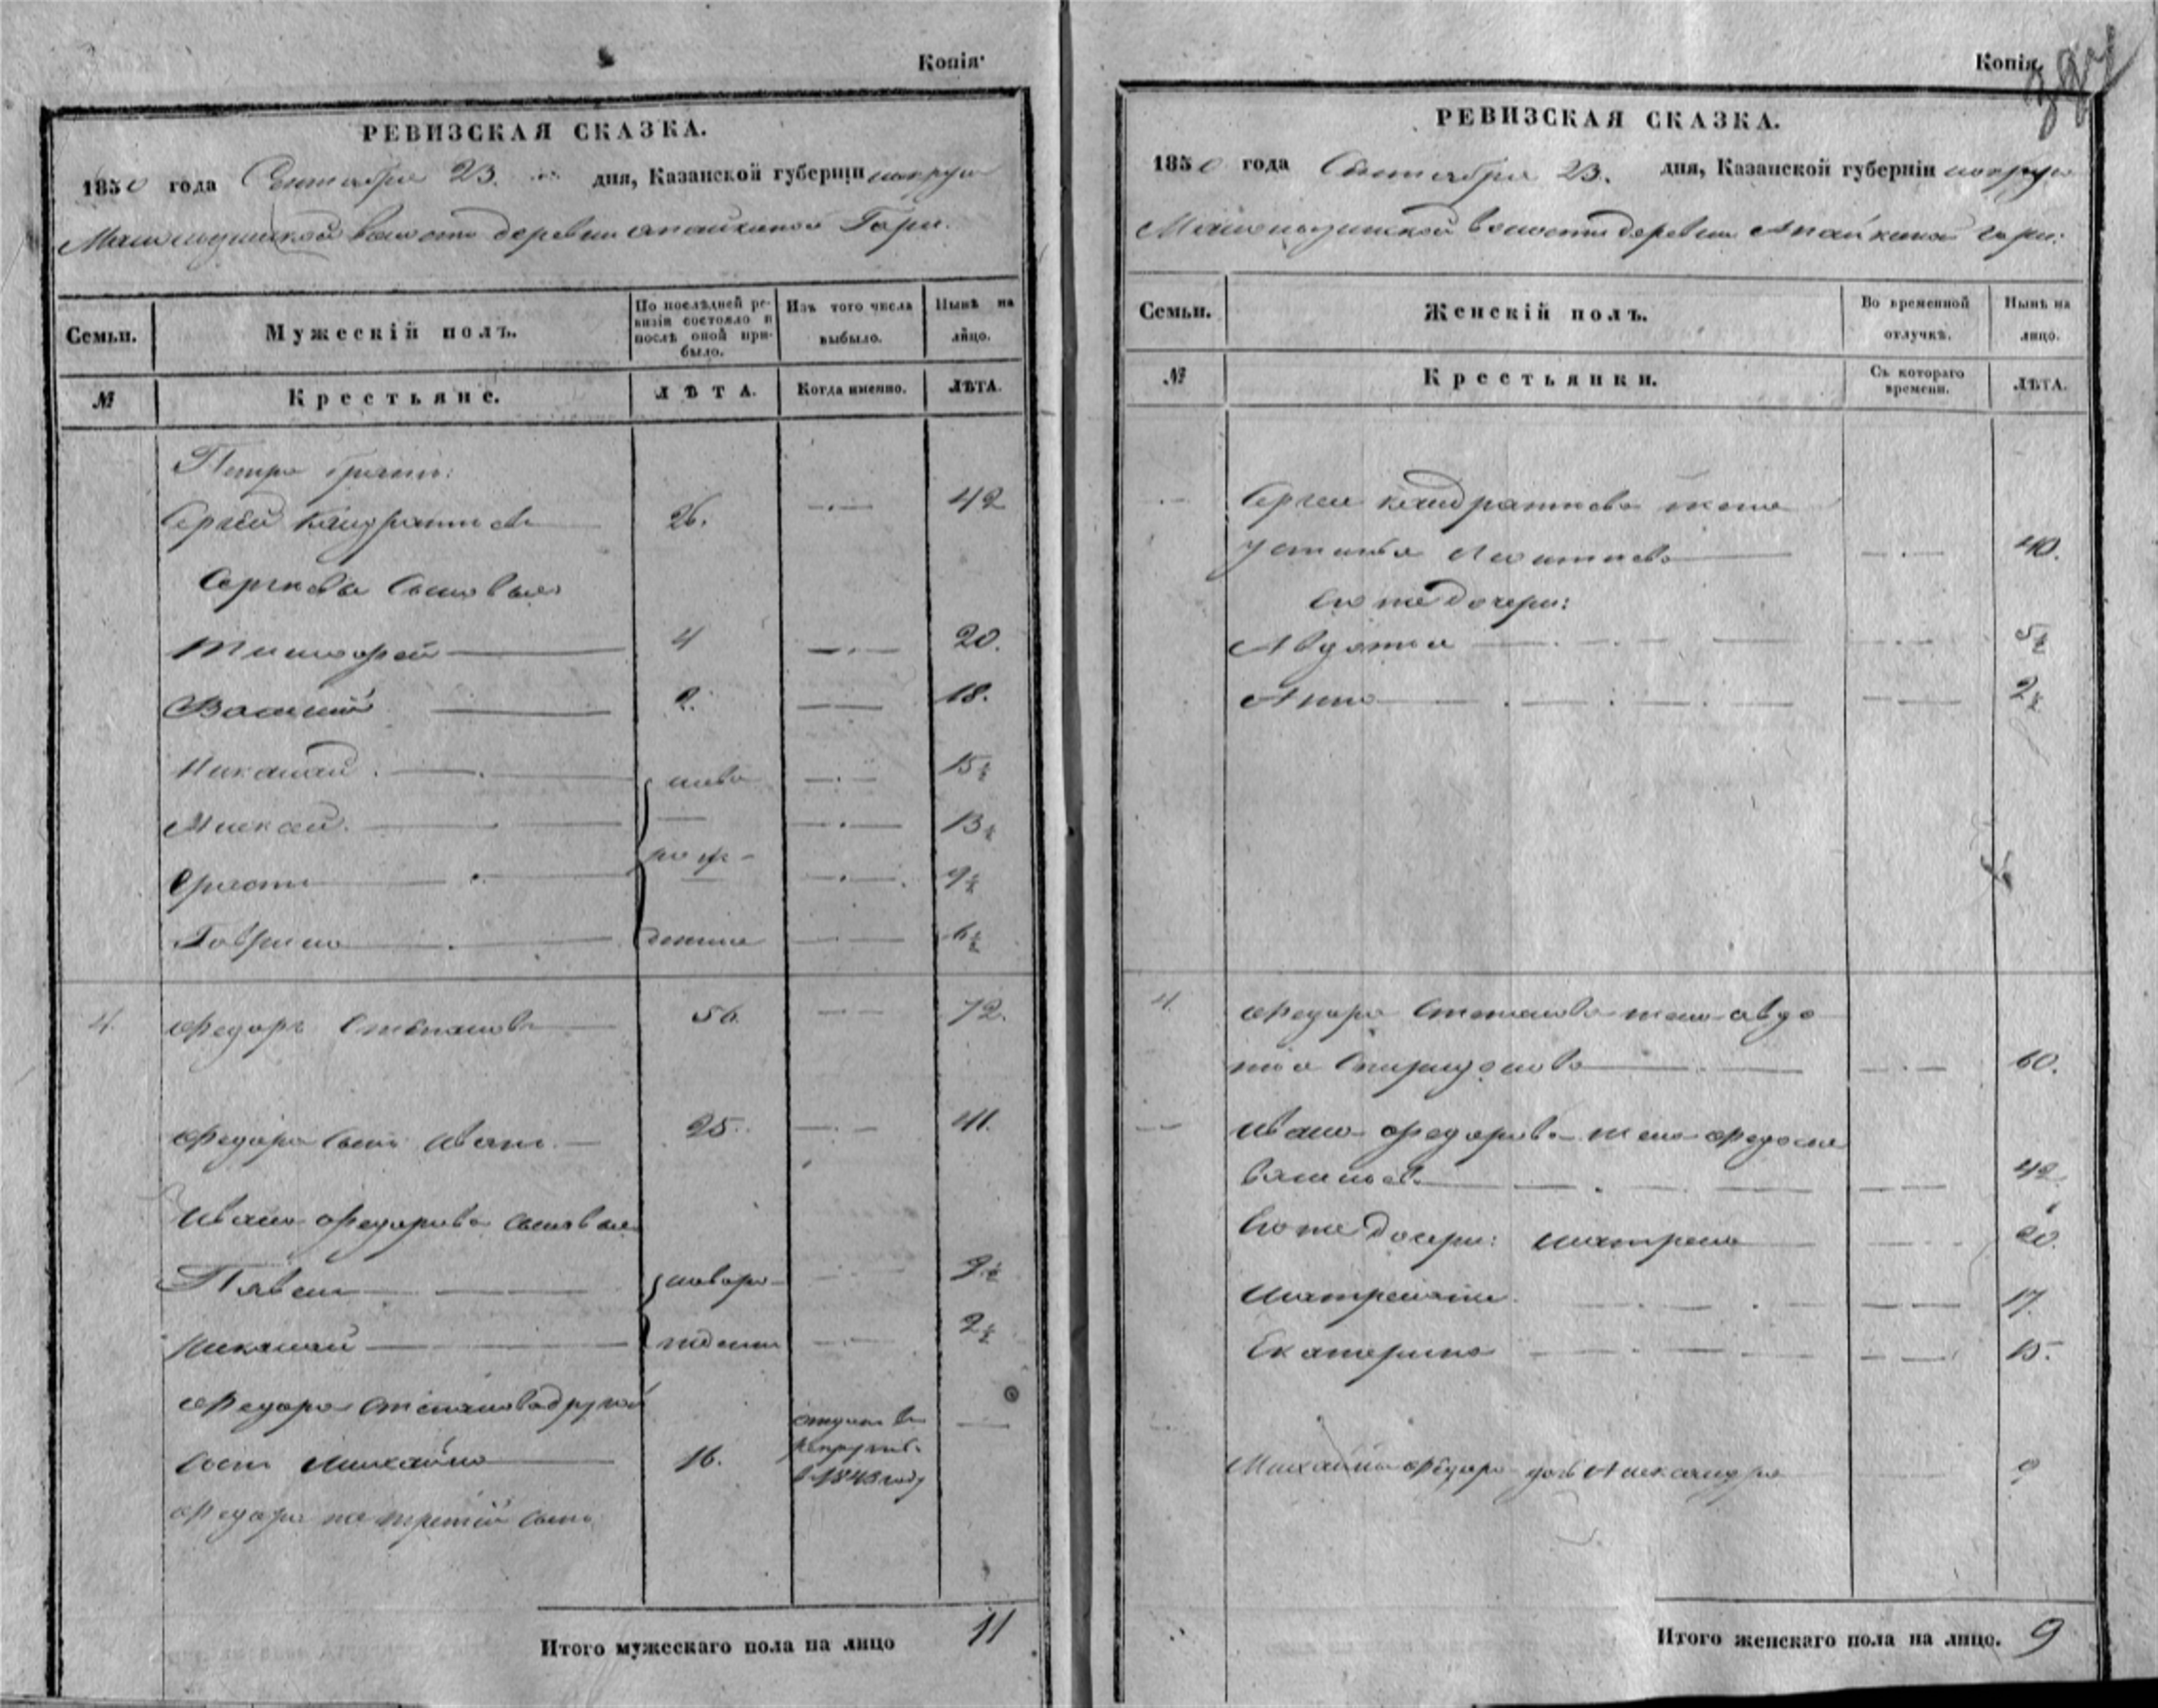 Копія
РЕВИЗСКАЯ СКАЗКА.
1850 года Сентября 23. дня, Казанской губерніи
волости деревни Апайкиной Гари.
Семьи. Мужескій полъ. По послѣдней ревизіи состояло и послѣ оной прибыло. Изъ того числа выбыло. Нынѣ на лицо.
№ Крестьяне. ЛѢТА. Когда именно. ЛѢТА.
Петра
Сергей Кандратьевъ 26. 42
Сергѣева сыновья
Тимофей 4 20.
Василий 2. 18.
Никалай ново 15½
Алексей 13½
рож 9½
Гаврила денные 6½
4. Федоръ Степановъ 56. 72.
Федора сынъ Иванъ 25. 41.
Ивана Федорова сыновья
Павелъ новоро 9½
Никалай жденны 2½
Федора Степанова другой
сынъ Михайло 16. отданъ в рекруты в 1843 году
Федора же третий сынъ
Итого мужескаго пола на лицо 11
Копія
РЕВИЗСКАЯ СКАЗКА.
1850 года Сентября 23. дня, Казанской губерніи
волости деревни Апайкиной Гари.
Семьи. Женскій полъ. Во временной отлучкѣ. Нынѣ на лицо.
№ Крестьянки. Съ котораго времени. ЛѢТА.
Сергея Кандратьева жена
Устинья 40.
Его же дочери:
Авдотья 5½
Анна 2½
4. Федора Степанова жена Авдо
тья Спиридонова 60.
Ивана Федорова жена Федосья
42
Его же дочери: Матрена 20.
17.
Екатерина 15.
Михайла Федора дочь Александра 9
Итого женскаго пола на лицо. 9